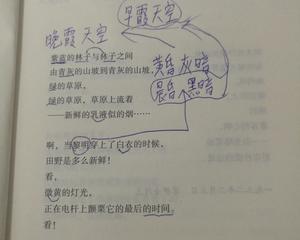 早霞天空
晚霞天空
紫蓝的林子与林子之间
由青灰的山坡到青灰的山坡,
绿的草原,
绿的草原,草原上流着
——新鲜的乳液似的烟……
黄昏 灰暗
晨昏 黑暗
啊,当黎明穿上了白衣的时候,
田野是多么新鲜!
看,
微黄的灯光,
正在电杆上颤栗它的最后的时间。
看!